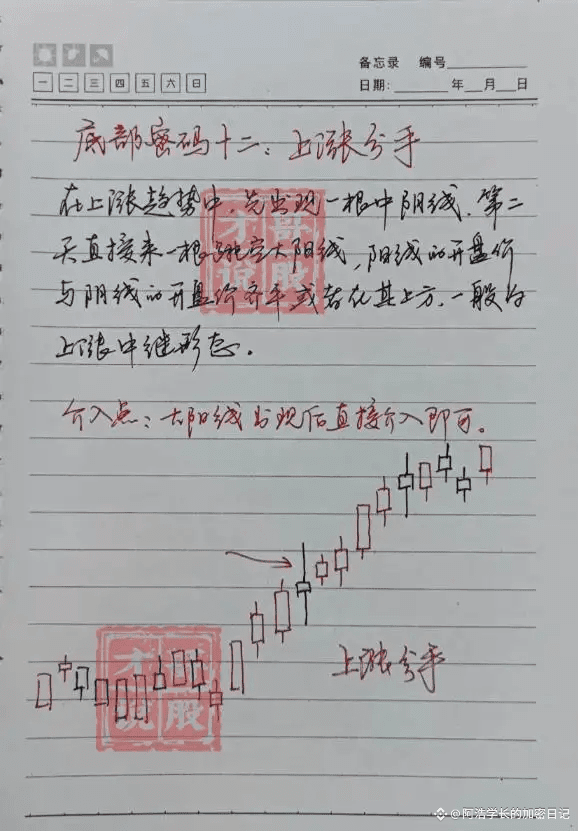 备忘录 编号
一 二 三 四 五 六 日
日期: 年 月 日
底部密码十二：上涨分手
在上涨趋势中，先出现一根中阴线，第二
天直接来一根跳空大阳线，阳线的开盘价
与阴线的开盘价齐平或者在其上方，一般为
上涨中继形态。
介入点：大阳线出现后直接介入即可。
上涨分手
才哥说股
才哥说股
@阿浩学长的加密日记